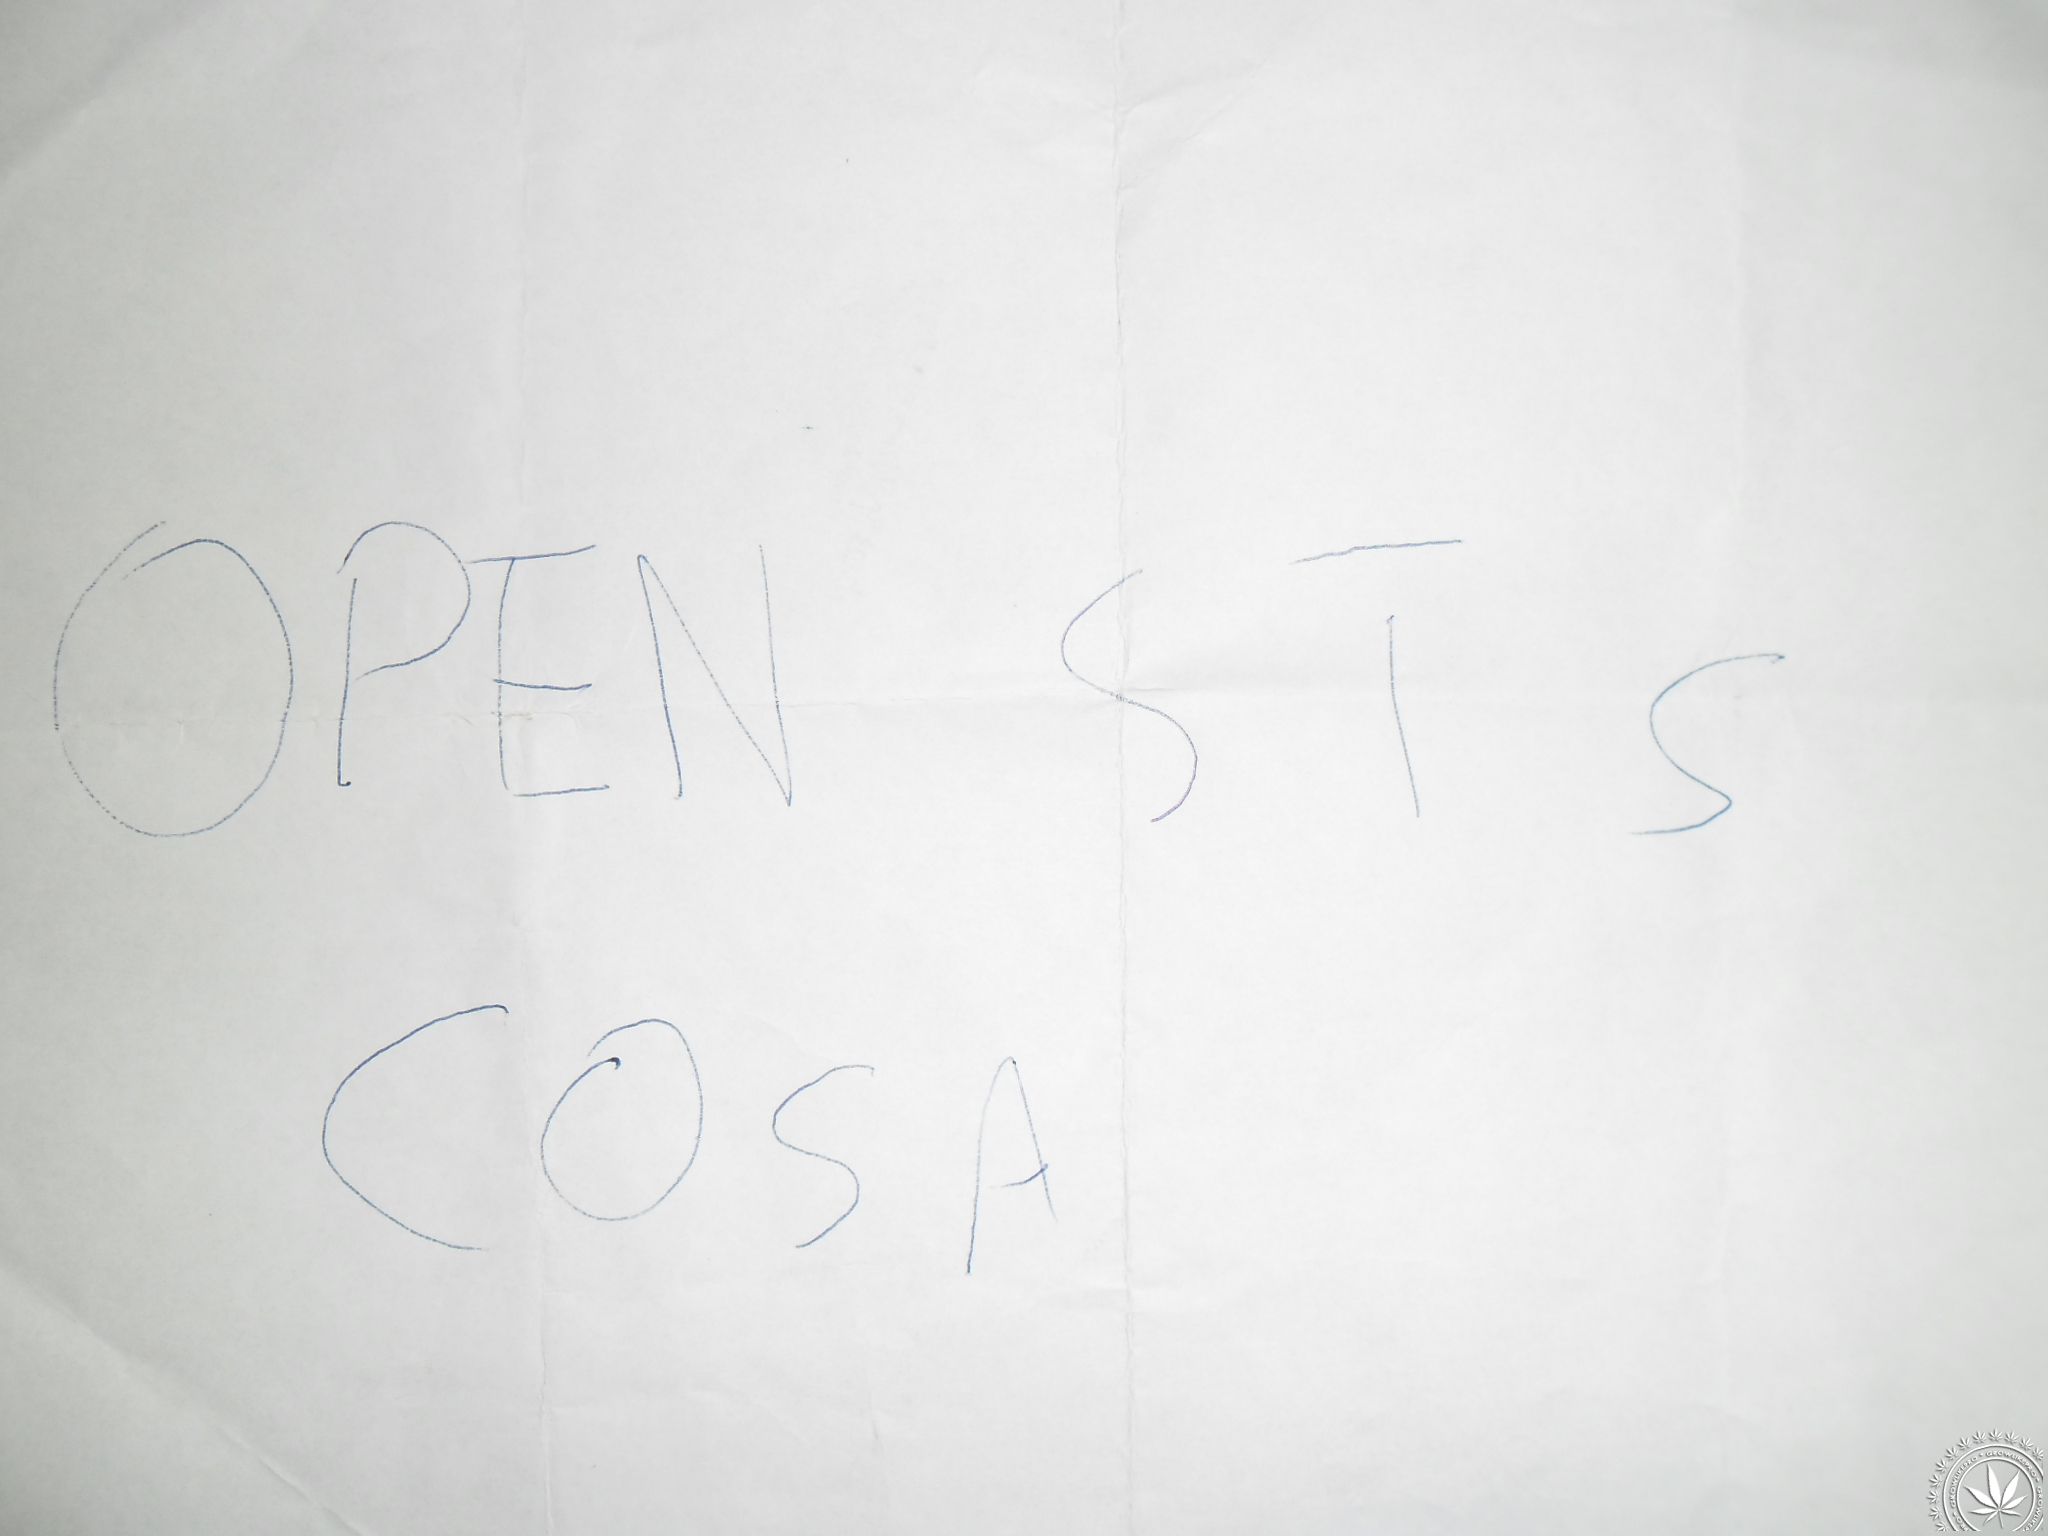 OPEN STS
COSA